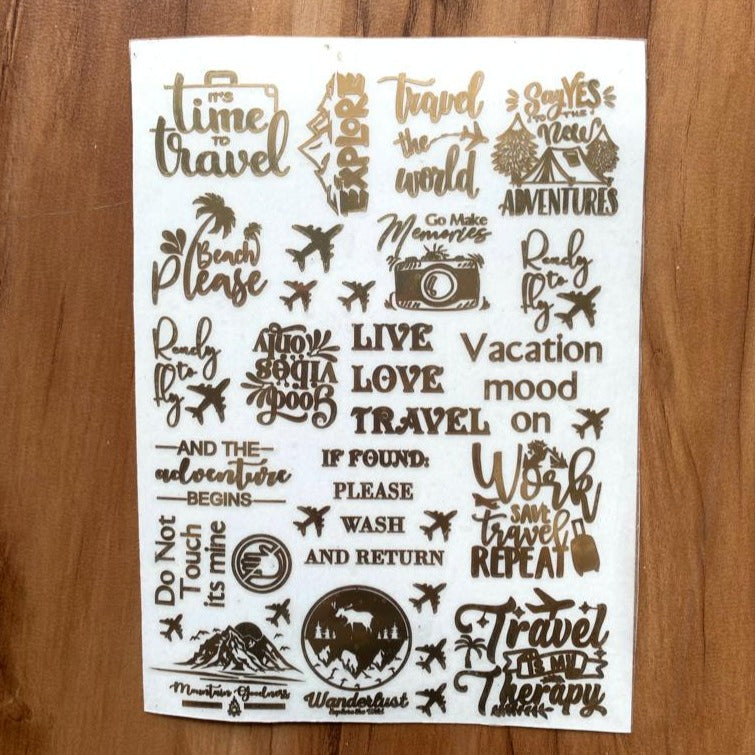 IT'S
time
TO
travel
EXPLORE
travel
the
world
Say YES
TO THE
New
ADVENTURES
Beach
Please
Go Make
Memories
Ready
to
fly
Ready
to
fly
Good
vibes
only
LIVE
LOVE
TRAVEL
Vacation
mood
on
AND THE
adventure
BEGINS
IF FOUND:
PLEASE
WASH
AND RETURN
Work
SAVE
travel
REPEAT
Do Not
Touch
its mine
Mountain Goodness
Wanderlust
Explore the Wild
Travel
IS MY
Therapy